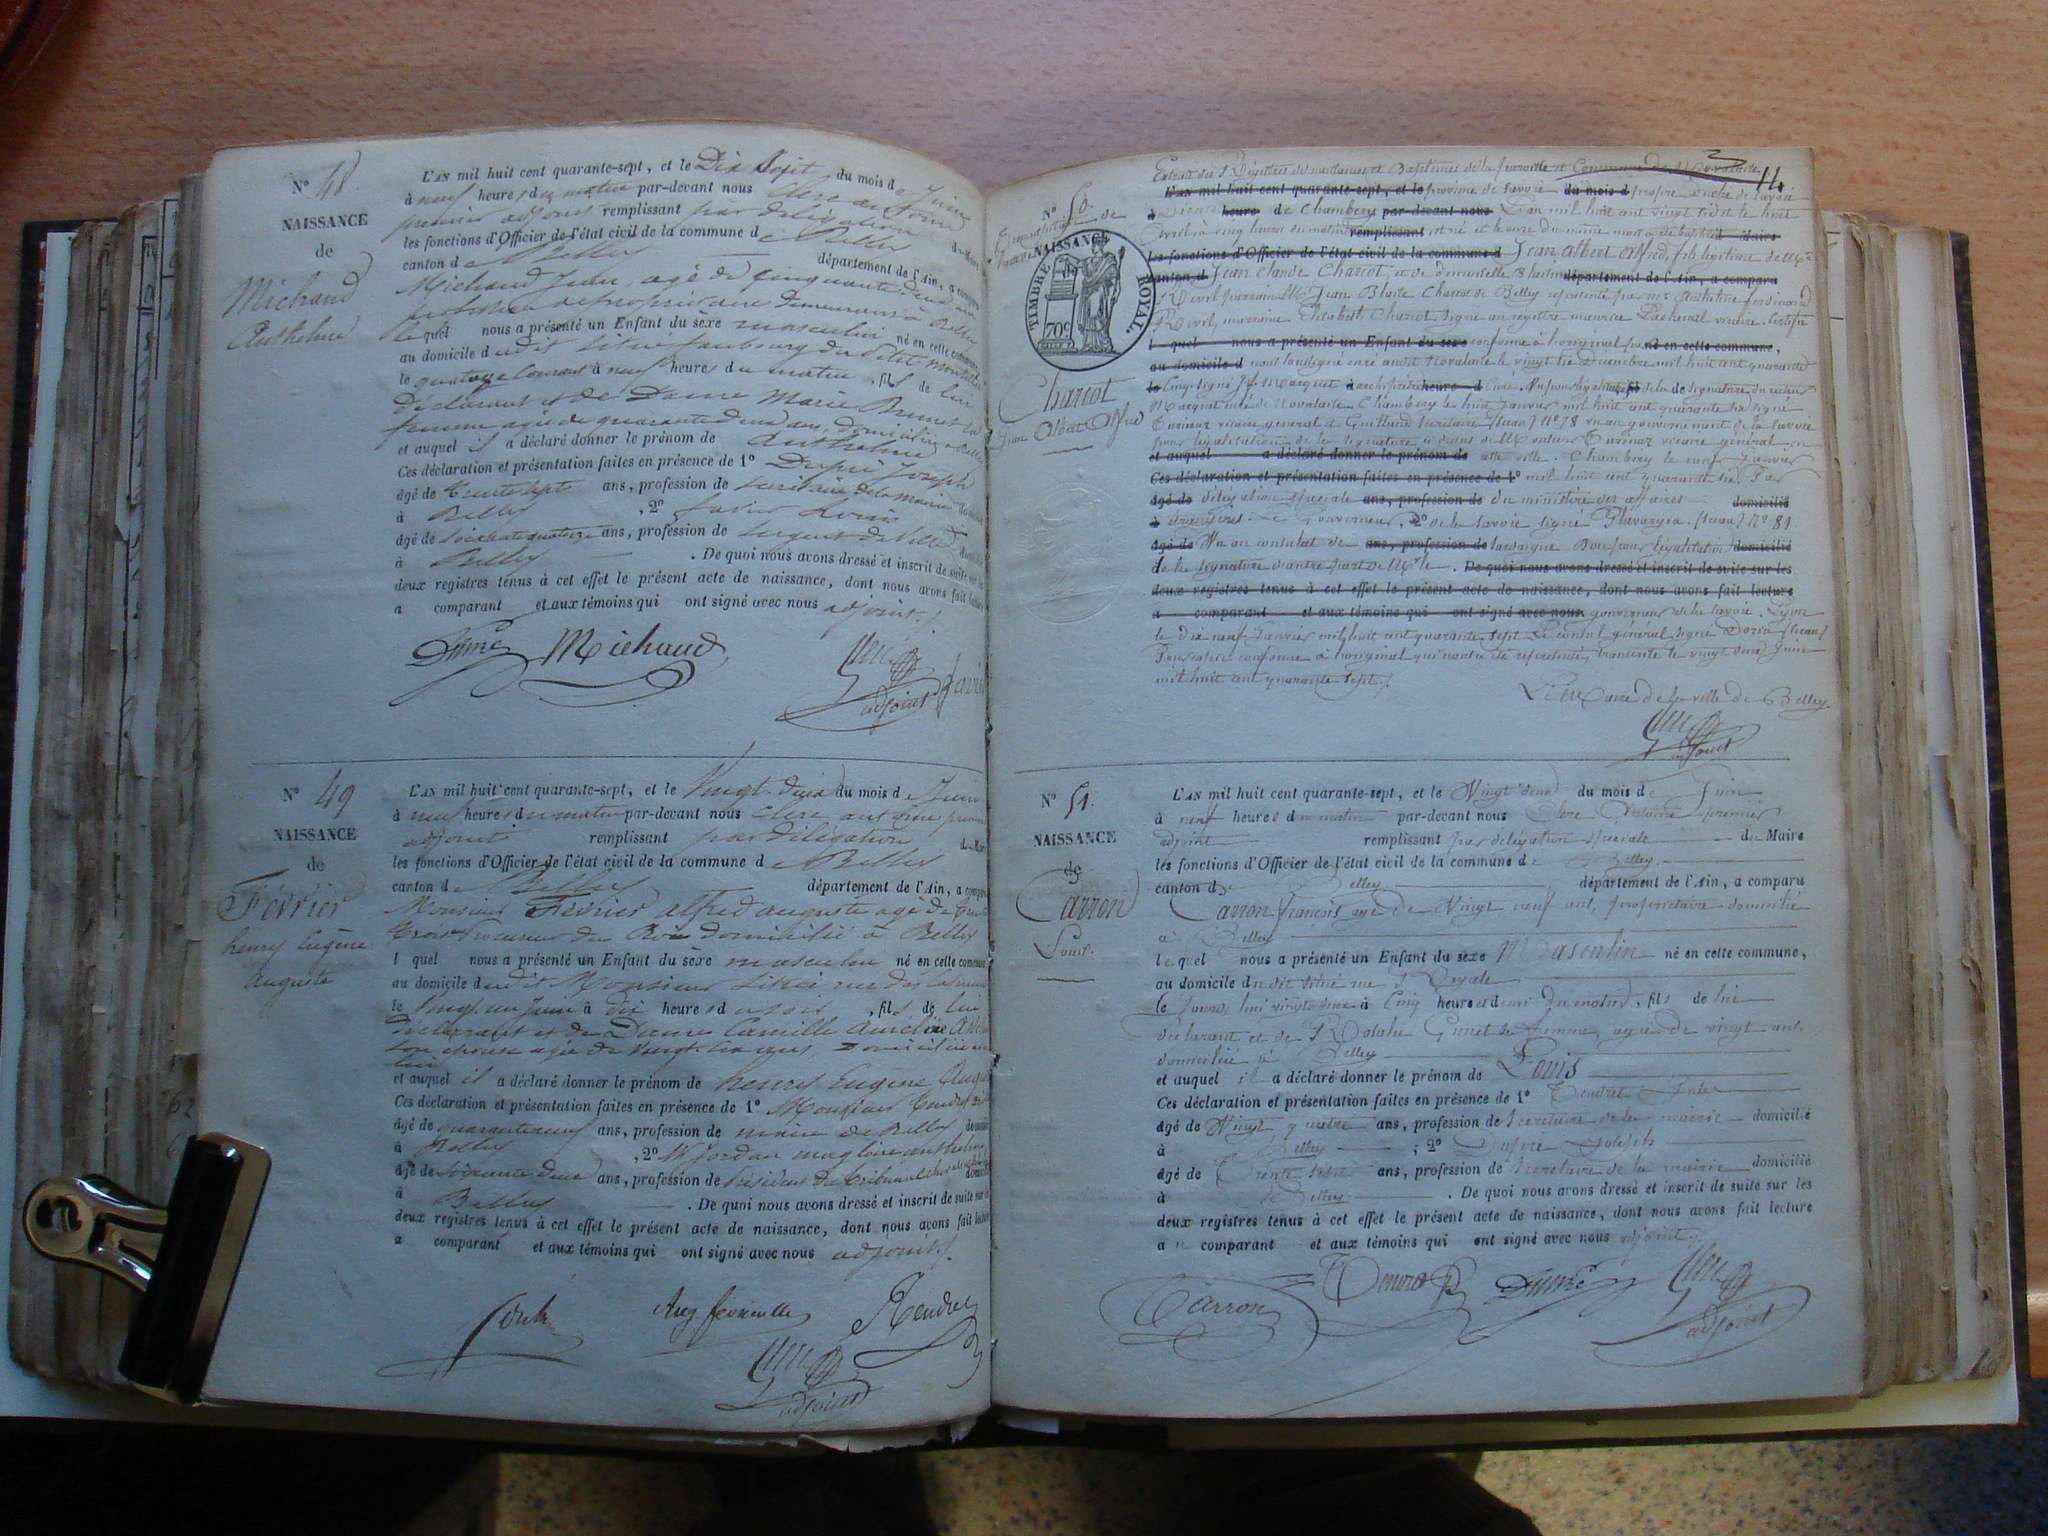 N° 48.
NAISSANCE
de
Michaud
Anthelme
L'AN mil huit cent quarante-sept, et le Dix Sept du mois de Juin
à neuf heures du matin par-devant nous Clerc antoine
premier adjoint remplissant par délégation du Maire
les fonctions d'Officier de l'état civil de la commune de Belley
canton de Belley département de l'Ain, a comparu
Michaud Jean, agé de Cinquante deux ans
profession de propriétaire demeurant à Belley
lequel nous a présenté un Enfant du sèxe masculin né en cette commune,
au domicile dudit situé faubourg du
le quatorze Courant à neuf heures du matin, fils de lui
déclarant et de Dame Marie Brunet sa
femme agée de quarante deux ans, domiciliée à Belley
et auquel il a déclaré donner le prénom de Anthelme
Ces déclaration et présentation faites en présence de 1° Dupré Joseph
âgé de trente sept ans, profession de Secrétaire de la mairie domicilié
à Belley, 2° Louis
âgé de soixante quatorze ans, profession de Sergent de Ville domicilié
à Belley. De quoi nous avons dressé et inscrit de suite sur les
deux registres tenus à cet effet le présent acte de naissance, dont nous avons fait lecture
a comparant et aux témoins qui ont signé avec nous adjoint./.
Dupré Michaud
adjoint
N° 49
NAISSANCE
de
Février
henry Eugène
auguste
L'AN mil huit cent quarante-sept, et le Vingt-deux du mois de Juin
à neuf heures du matin par-devant nous Clerc antoine premier
adjoint remplissant par délégation du Maire
les fonctions d'Officier de l'état civil de la commune de Belley
canton de Belley département de l'Ain, a comparu
Monsieur Février alfred auguste agé de trente
trois procureur du Roi domicilié à Belley
l quel nous a présenté un Enfant du sèxe masculin né en cette commune
au domicile dudit Monsieur Situé rue
le Vingt un Juin à dix heures du soir, fils de lui
déclarant et de Dame Camille Aureline
son épouse agée de vingt trois ans Domiciliée avec
lui
et auquel il a déclaré donner le prénom de henry Eugène Auguste
Ces déclaration et présentation faites en présence de 1° Monsieur Tendret
âgé de quarante neuf ans, profession de maire de Belley domicilié
à Belley, 2° M Jordan magloire anthelme
âgé de soixante deux ans, profession de Président du tribunal civil domicilié
à Belley. De quoi nous avons dressé et inscrit de suite sur les
deux registres tenus à cet effet le présent acte de naissance, dont nous avons fait lecture
a comparant et aux témoins qui ont signé avec nous adjoint./.
Tendret
adjoint
14.
N° 50.
Transcription de
NAISSANCE
de
TIMBRE ROYAL.
70c
Charcot
Jean Albert Alfred
Extrait des Régistres de naissances et Baptêmes de la paroisse et Commune de Novalaise
L'AN mil huit cent quarante-sept, et le province de Savoie du mois d propre duché de Savoie
à Diocèse heure de Chambéry par-devant nous L'an mil huit cent vingt trois et le huit
avril à cinq heures du matin remplissant est né et le onze du même mois a été baptisé Maire
les fonctions d'Officier de l'état civil de la commune d Jean Albert Alfred, fils légitime de
canton d Jean Claude Charcot, et de demoiselle département de l'Ain, a comparu
Revil, parrain Mr Jean Charcot de Belley représenté par Mr Anthelme ferdinand
Revil, marraine Charcot. Signé au registre maurice Pachenal vicaire. Certifié
l quel nous a présenté un Enfant du sexe conforme à l'original par né en cette commune,
au domicile d nous soussigné curé Novalaise le vingt six Décembre mil huit cent quarante
le Cinq. Signé Marquet archiprêtre heure d Curé. Vu pour légalisation fil de la de signature du recteur
Marquet curé de Novalaise. Chambéry le huit Janvier mil huit cent quarante six signé
Turinaz vicaire général et Guilland Secrétaire (sceau) N° 78 vu au gouvernement de la Savoie
pour légalisation de la signature ci dessus de Monsieur Turinaz vicaire général en
et auquel a déclaré donner le prénom de cette ville. Chambéry le neuf Janvier
Ces déclaration et présentation faites en présence de 1° mil huit cent quarante six. Par
âgé de délégation spéciale ans, profession de du ministère des affaires domicilié
à étrangères. Le Gouverneur, 2° de la Savoie signé (sceau) N° 81
âgé de Vu au consulat de ans, profession de Sardaigne Bon pour légalisation domicilié
de la signature d'autre part de Mr le. De quoi nous avons dressé et inscrit de suite sur les
deux registres tenus à cet effet le présent acte de naissance, dont nous avons fait lecture
a comparant et aux témoins qui ont signé avec nous gouverneur de la Savoie. Lyon
le dix neuf Janvier mil huit cent quarante sept. Le Consul général signé Doria (sceau)
Pour copie conforme à l'original qui nous a été représenté, transcrite le vingt deux Juin
mil huit cent quarante sept./.
Le Maire de la ville de Belley.
adjoint
N° 51.
NAISSANCE
de
Carron
Louis.
L'AN mil huit cent quarante-sept, et le Vingt deux du mois de Juin
à neuf heures du matin par-devant nous Clerc Antoine premier
adjoint remplissant par délégation spéciale du Maire
les fonctions d'Officier de l'état civil de la commune de Belley.
canton de Belley département de l'Ain, a comparu
Carron françois agé de Vingt neuf ans, propriétaire domicilié
à Belley
lequel nous a présenté un Enfant du sexe Masculin né en cette commune,
au domicile dudit situé rue Royale
le Jourd'hui vingt deux à Cinq heures et demi du matin, fils de lui
déclarant et de Rosalie Genet sa femme, agée de vingt ans,
domiciliée à Belley
et auquel il a déclaré donner le prénom de Louis
Ces déclaration et présentation faites en présence de 1° Tendret Jules
âgé de Vingt quatre ans, profession de Secrétaire de la mairie domicilié
à Belley; 2° Dupré Joseph
âgé de Trente sept ans, profession de Secrétaire de la mairie domicilié
à Belley. De quoi nous avons dressé et inscrit de suite sur les
deux registres tenus à cet effet le présent acte de naissance, dont nous avons fait lecture
au comparant et aux témoins qui ont signé avec nous adjoint./.
Carron Tendret Dupré
adjoint